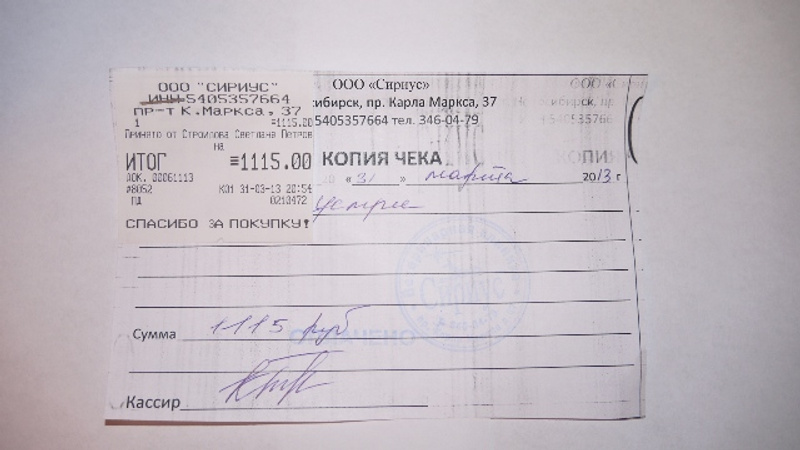 ООО "СИРИУС"
ИНН 5405357664
пр-т К.Маркса, 37
1 ≡1115.00
Принято от Строилова Светлана Петров
на
ИТОГ ≡1115.00
ДОК. 00061113
#8052 К01 31-03-13 20:54
ПД 0210472
СПАСИБО ЗА ПОКУПКУ!
ООО «Сириус»
сибирск, пр. Карла Маркса, 37
5405357664 тел. 346-04-79
КОПИЯ ЧЕКА
« 31 » марта 2013 г
Сумма 1115 руб
ОПЛАЧЕНО
Сириус
Кассир
ООО «С
восибирск, пр
5405357664
КОПИ